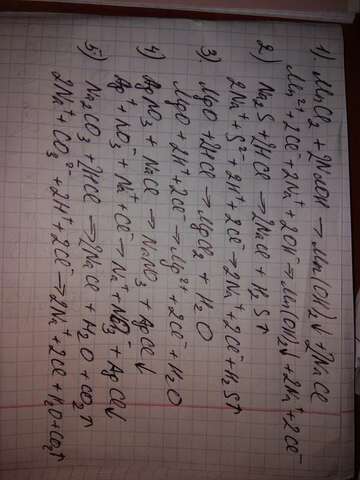 1). MnCl2 + 2NaOH → Mn(OH)2↓ + 2NaCl
Mn2+ + 2Cl- + 2Na+ + 2OH- → Mn(OH)2↓ + 2Na+ + 2Cl-
2) Na2S + 2HCl → 2NaCl + H2S↑
2Na+ + S2- + 2H+ + 2Cl- → 2Na+ + 2Cl- + H2S↑
3) MgO + 2HCl → MgCl2 + H2O
MgO + 2H+ + 2Cl- → Mg2+ + 2Cl- + H2O
4) AgNO3 + NaCl → NaNO3 + AgCl↓
Ag+ + NO3- + Na+ + Cl- → Na+ + NO3- + AgCl↓
5) Na2CO3 + 2HCl → 2NaCl + H2O + CO2↑
2Na+ + CO3 2- + 2H+ + 2Cl- → 2Na+ + 2Cl + H2O + CO2↑